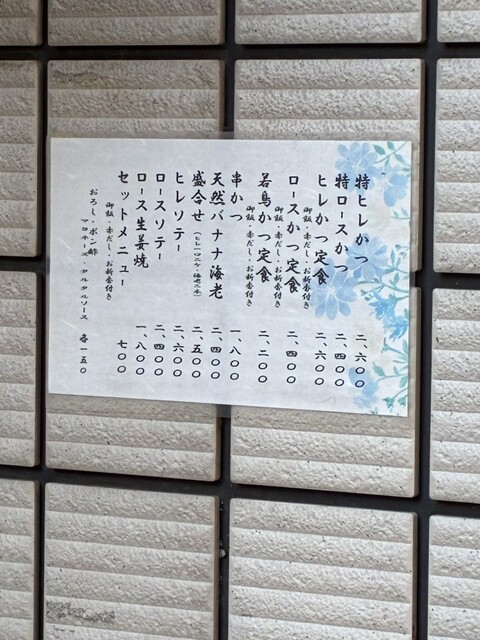 特ヒレかつ 二、六〇〇
特ロースかつ 二、四〇〇
ヒレかつ定食 二、六〇〇
御飯・赤だし・お新香付き
ロースかつ定食 二、四〇〇
御飯・赤だし・お新香付き
若鳥かつ定食 二、二〇〇
御飯・赤だし・お新香付き
串かつ 一、八〇〇
天然バナナ海老 二、四〇〇
盛合せ 二、五〇〇
ヒレソテー 二、六〇〇
ロースソテー 二、四〇〇
ロース生姜焼 一、八〇〇
セットメニュー 七〇〇
御飯・赤だし・お新香付き
おろし・ポン酢
マヨネーズ・タルタルソース 各一五〇